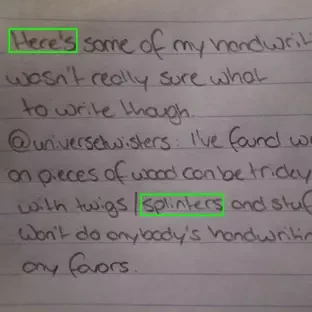 Here's some of my handwriti
wasn't really sure what
to write though.
@universetwisters: I've found w
on pieces of wood can be tricky
with twigs/splinters and stuf
won't do anybody's handwritin
any favors.